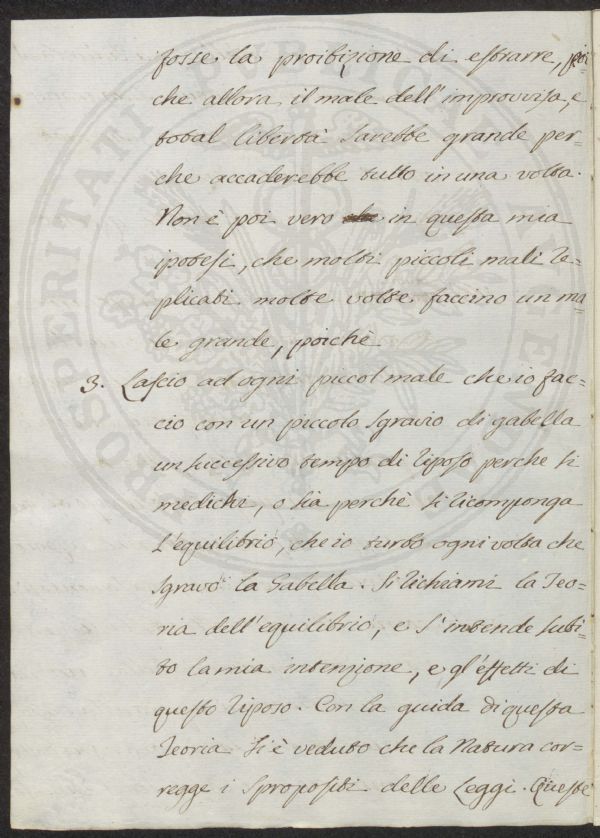 fosse la proibizione di estrarre, poi
che allora il male dell'improvvisa, e
total libertà sarebbe grande per=
che accaderebbe tutto in una volta.
Non è poi vero in questa mia
ipotesi, che molti piccoli mali re=
plicati molte volte faccino un ma=
le grande, poichè
3. Lascio ad ogni piccol male che io fac=
cio con un piccolo sgravio di gabella
un successivo tempo di riposo perche si
medichi, o sia perchè si ricomponga
l'equilibrio, che io turbo ogni volta che
sgravo la Gabella. Si richiami la Teo=
ria dell'equilibrio, e s'intende subi=
to la mia intenzione, e gl'effetti di
questo riposo. Con la guida di questa
Teoria si è veduto che la Natura cor=
regge i spropositi delle Leggi. Queste
PROSPERITATI PUBLICAE AUGENDAE